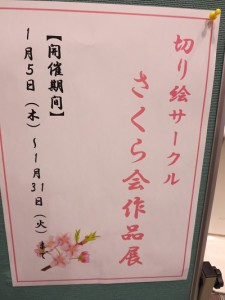 切り絵サークル
さくら会作品展
【開催期間】
1月5日（木）～1月31日（火）まで